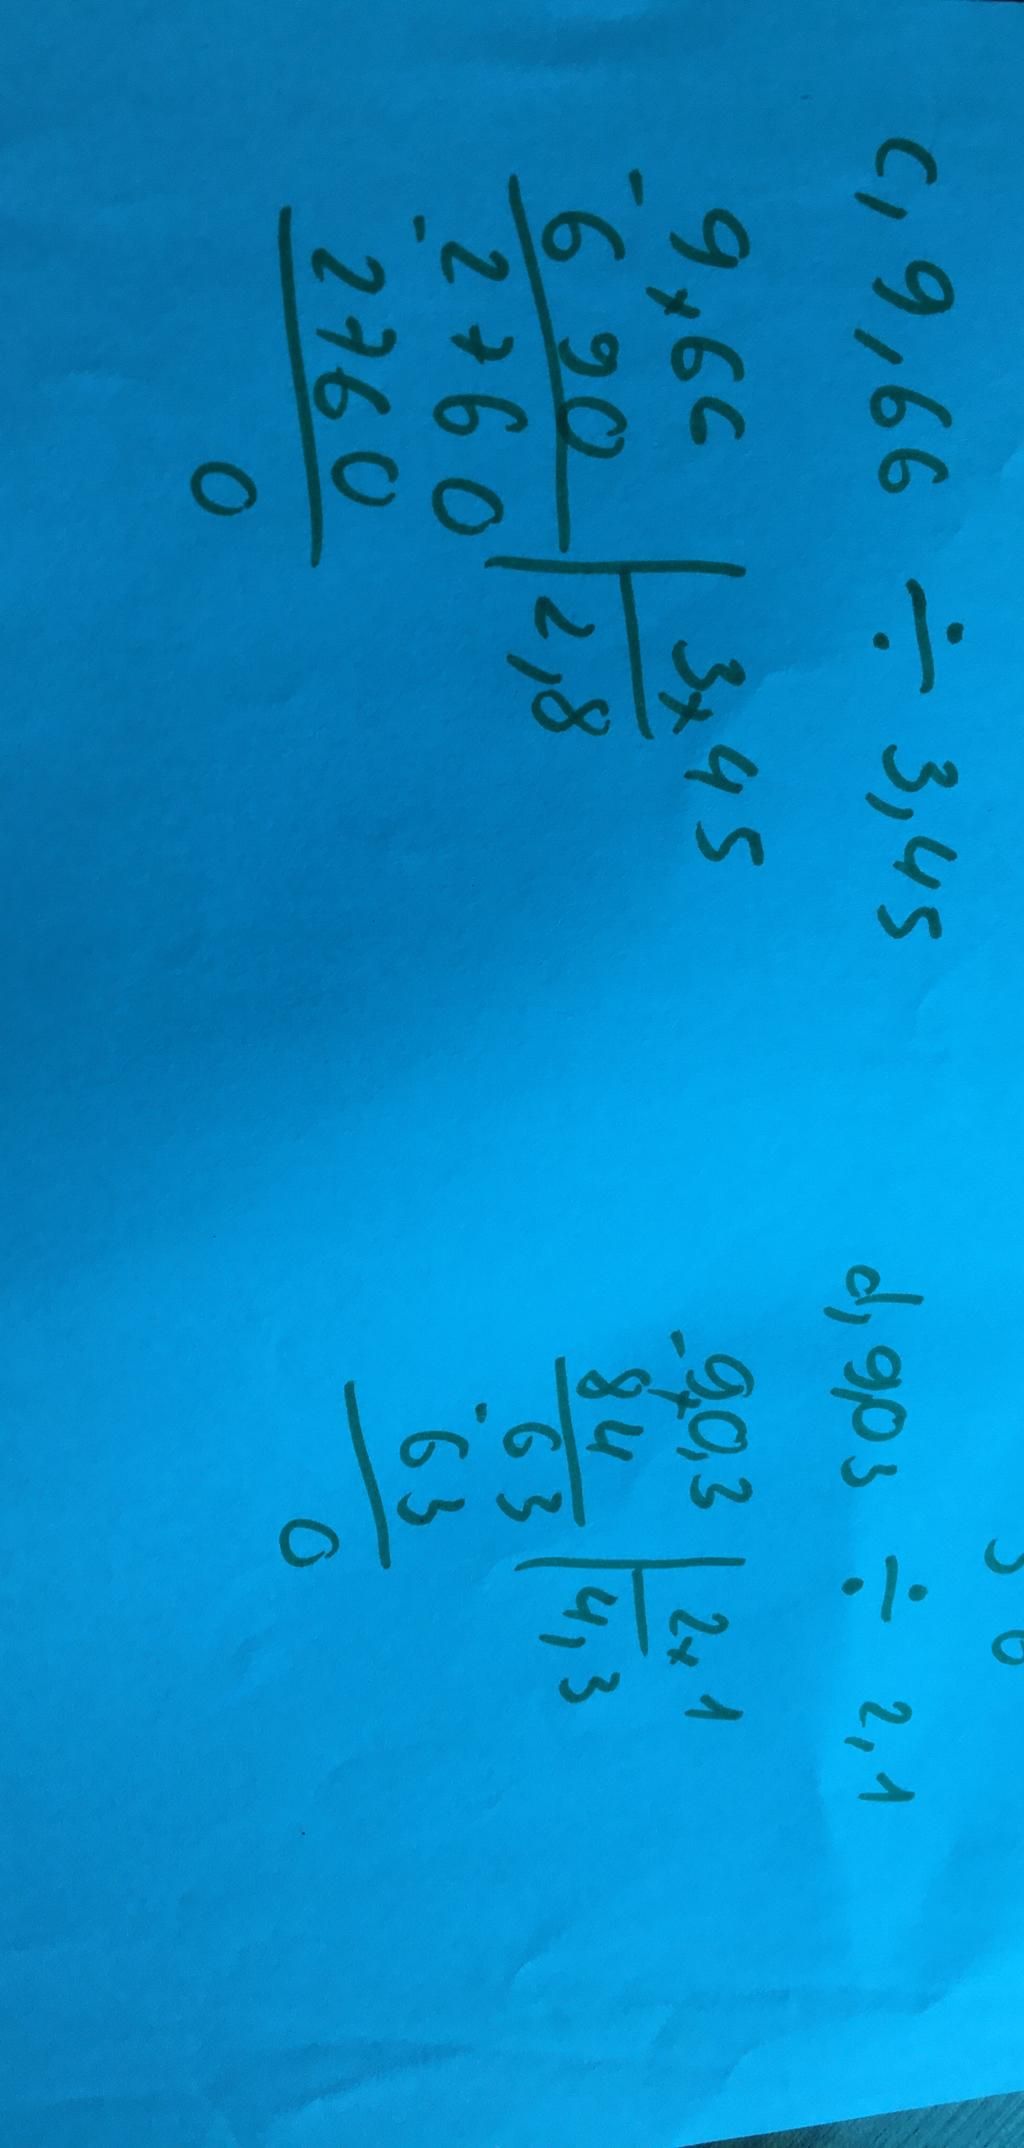 c, 9,66 ÷ 3,45
9,66 | 3,45
- 6 90 | 2,8
- 2760
2760
0
d, 9,03 ÷ 2,1
- 9,0,3 | 2,1
84 | 4,3
- 63
63
0